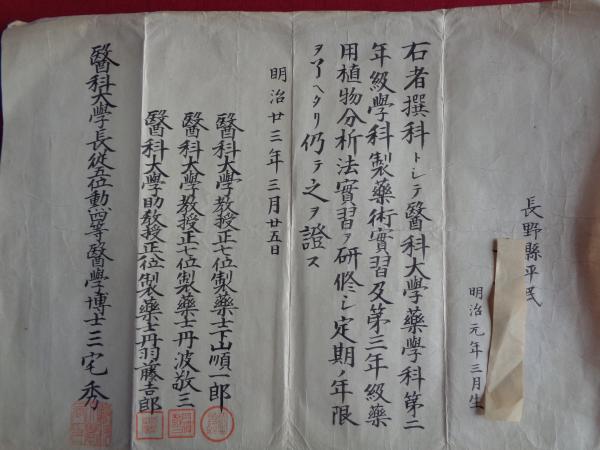 長野縣平民
明治元年三月生
右者撰科トシテ醫科大學藥學科第二
年級學科製藥術實習及第三年級藥
用植物分析法實習ヲ研修シ定期ノ年限
ヲ了ヘタリ仍テ之ヲ證ス
明治廿三年三月廿五日
醫科大學教授正七位製藥士下山順一郎
醫科大學教授正七位製藥士丹波敬三
醫科大學助教授正八位製藥士丹羽藤吉郎
醫科大學長從五位勳四等醫學博士三宅秀